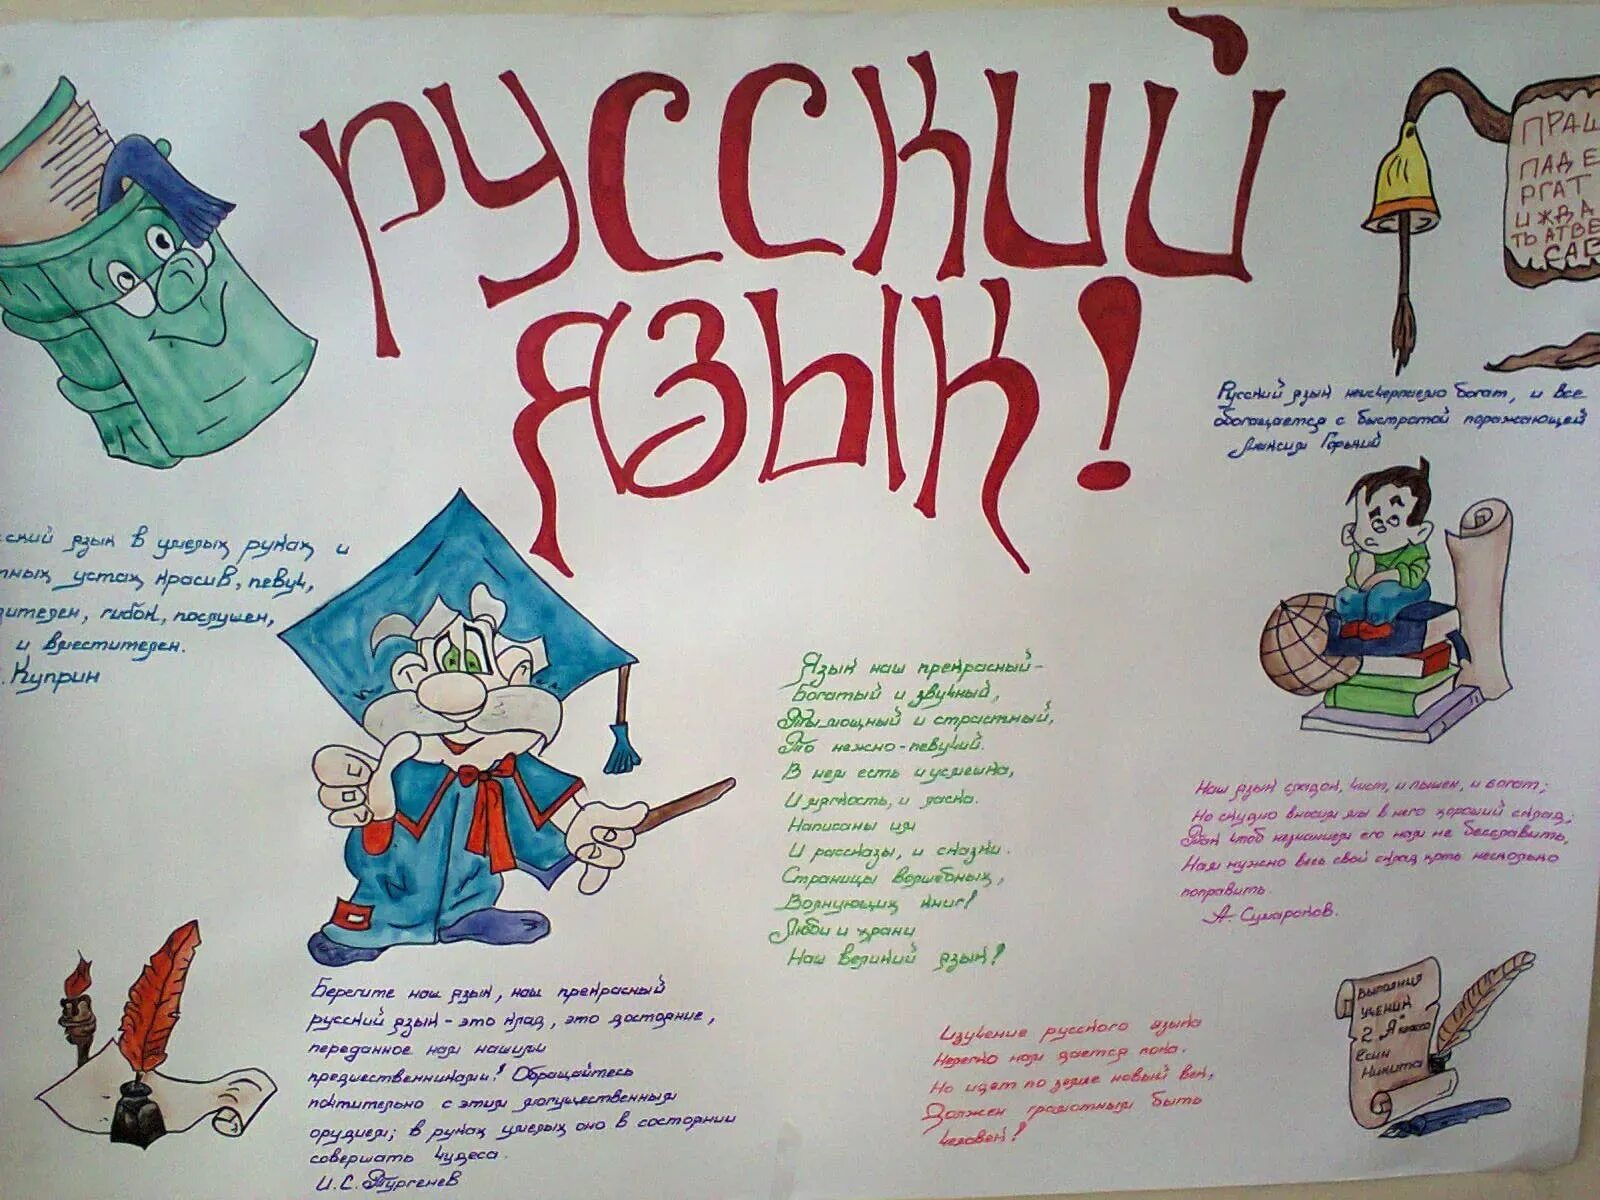 Русский
язык!
ПРАШ
ПАДЕ
РГАТ
ИЖДА
ТЬАТВЕ
САВ
Русский язык неисчерпаемо богат, и все
обогащается с быстротой поражающей
Максим Горький
ский язык в умелых руках и
тных устах красив, певуч,
зителен, гибок, послушен,
и вместителен.
. Куприн
Язык наш прекрасный-
Богатый и звучный,
То мощный и страстный,
То нежно-певучий.
В нем есть и усмешка,
И мягкость, и ласка.
Написаны им
И рассказы, и сказки.
Страницы волшебных,
Волнующих книг!
Люби и храни
Наш великий язык!
Наш язык сладок, чист, и пышен, и богат;
Но скудно вносим мы в него хороший склад;
Так чтоб незнанием его нам не бесславить,
Нам нужно весь свой склад хоть несколько
поправить.
А. Сумароков.
Берегите наш язык, наш прекрасный
русский язык - это клад, это достояние,
переданное нам нашими
предшественниками! Обращайтесь
почтительно с этим могущественным
орудием; в руках умелых оно в состоянии
совершать чудеса.
И.С. Тургенев
Изучение русского языка
Нелегко нам дается пока.
Но идет по земле новый век,
Должен грамотным быть
человек!
Выполнил
ученик
2 "Я" класса
Есин
Никита